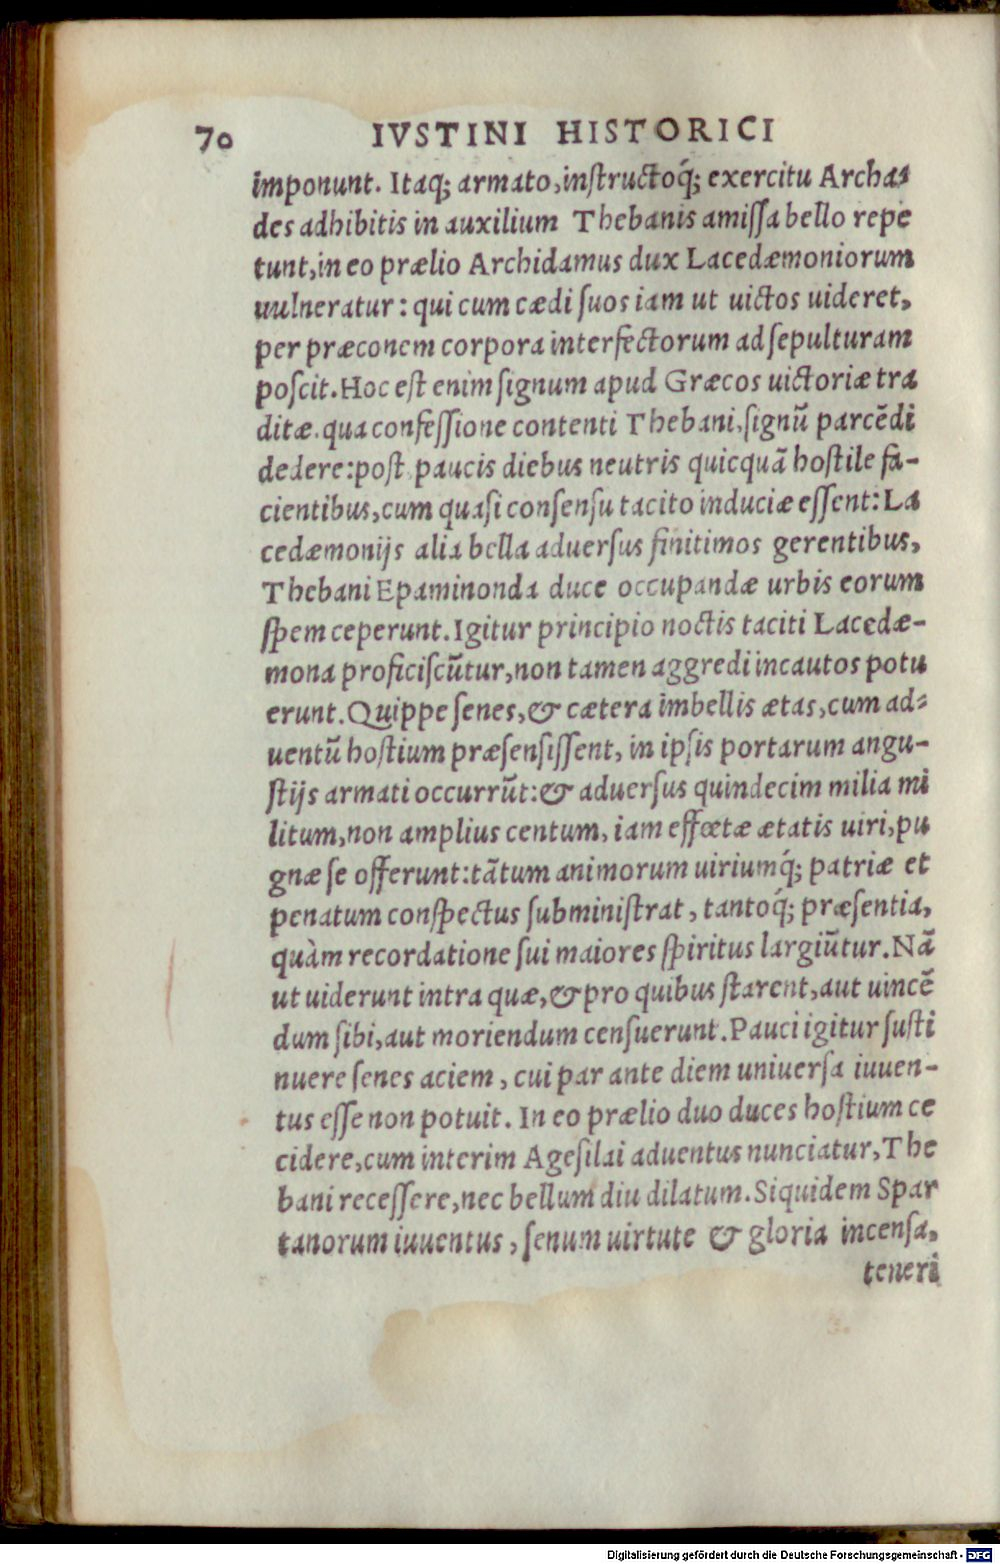 70 IVSTINI HISTORICI
imponunt. Itaq; armato, instructoq́; exercitu Archa-
des adhibitis in auxilium Thebanis amissa bello repe
tunt, in eo prælio Archidamus dux Lacedæmoniorum
uulneratur: qui cum cædi suos iam ut uictos uideret,
per præconem corpora interfectorum ad sepulturam
poscit. Hoc est enim signum apud Græcos uictoriæ tra
ditæ. qua confessione contenti Thebani, signũ parcẽdi
dedere: post paucis diebus neutris quicquã hostile fa-
cientibus, cum quasi consensu tacito induciæ essent: La
cedæmonijs alia bella aduersus finitimos gerentibus,
Thebani Epaminonda duce occupandæ urbis eorum
spem ceperunt. Igitur principio noctis taciti Lacedæ-
mona proficiscũtur, non tamen aggredi incautos potu
erunt. Quippe senes, & cætera imbellis ætas, cum ad-
uentũ hostium præsensissent, in ipsis portarum angu-
stijs armati occurrũt: & aduersus quindecim milia mi
litum, non amplius centum, iam effœtæ ætatis uiri, pu
gnæ se offerunt: tãtum animorum uiriumq́; patriæ et
penatum conspectus subministrat, tantoq́; præsentia,
quàm recordatione sui maiores spiritus largiũtur. Nã
ut uiderunt intra quæ, & pro quibus starent, aut uincẽ
dum sibi, aut moriendum censuerunt. Pauci igitur susti
nuere senes aciem, cui par ante diem uniuersa iuuen-
tus esse non potuit. In eo prælio duo duces hostium ce
cidere, cum interim Agesilai aduentus nunciatur, The
bani recessere, nec bellum diu dilatum. Siquidem Spar
tanorum iuuentus, senum uirtute & gloria incensa,
teneri
Digitalisierung gefördert durch die Deutsche Forschungsgemeinschaft - DFG